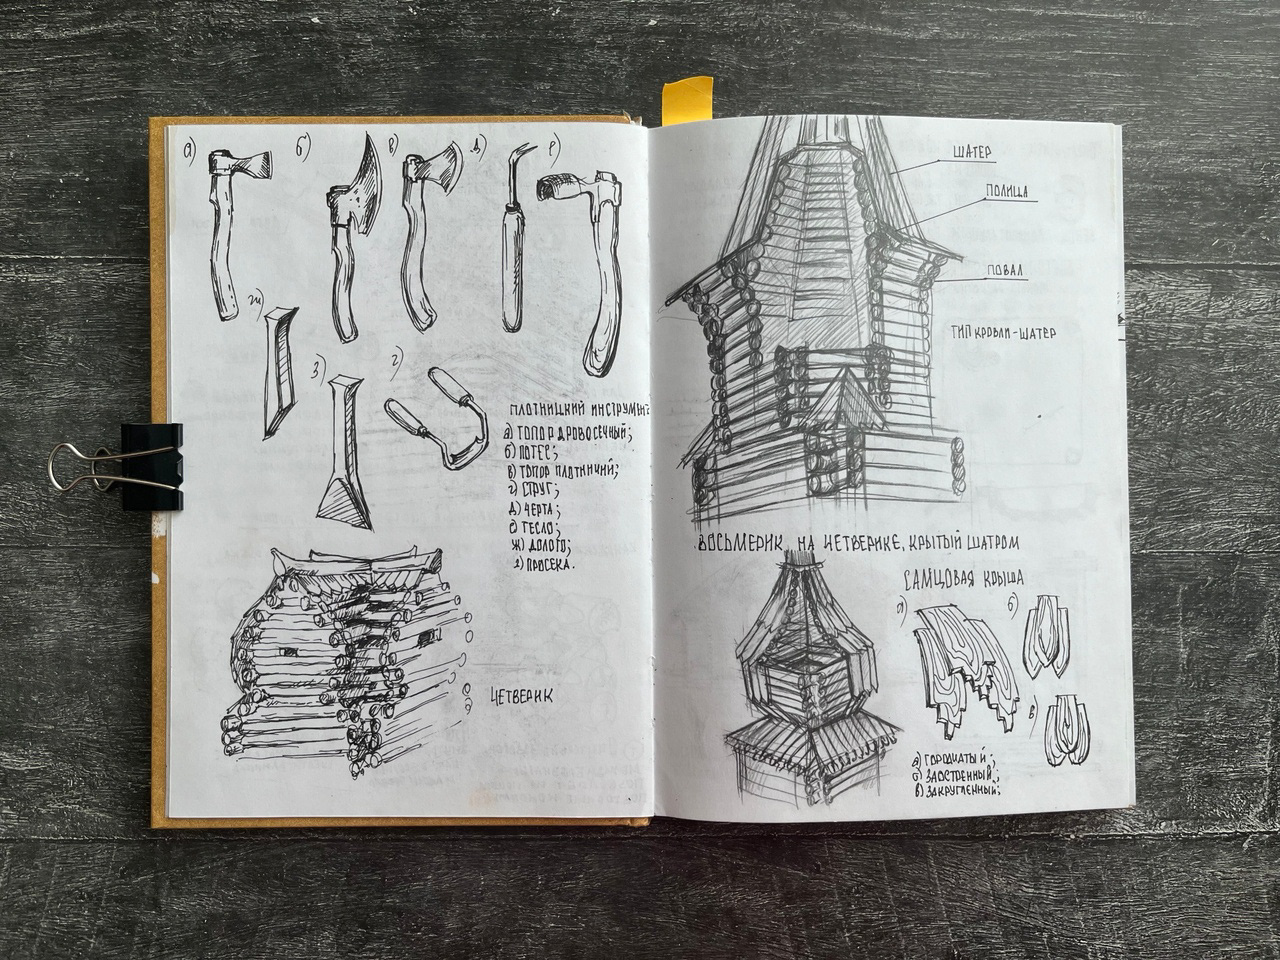 а)
б)
в)
д)
е)
ж)
з)
г)
ПЛОТНИЦКИЙ ИНСТРУМЕНТ
а) ТОПОР ДРОВОСЕЧНЫЙ;
б) ПОТЕС;
в) ТОПОР ПЛОТНИЧИЙ;
г) СТРУГ;
д) ЧЕРТА;
е) ТЕСЛО;
ж) ДОЛОТО;
з) ПРОСЕКА.
ЧЕТВЕРИК
ШАТЕР
ПОЛИЦА
ПОВАЛ
ТИП КРОВЛИ - ШАТЕР
ВОСЬМЕРИК НА ЧЕТВЕРИКЕ, КРЫТЫЙ ШАТРОМ
САМЦОВАЯ КРЫША
а)
б)
в)
а) ГОРОДЧАТЫЙ;
б) ЗАОСТРЕННЫЙ;
в) ЗАКРУГЛЕННЫЙ;